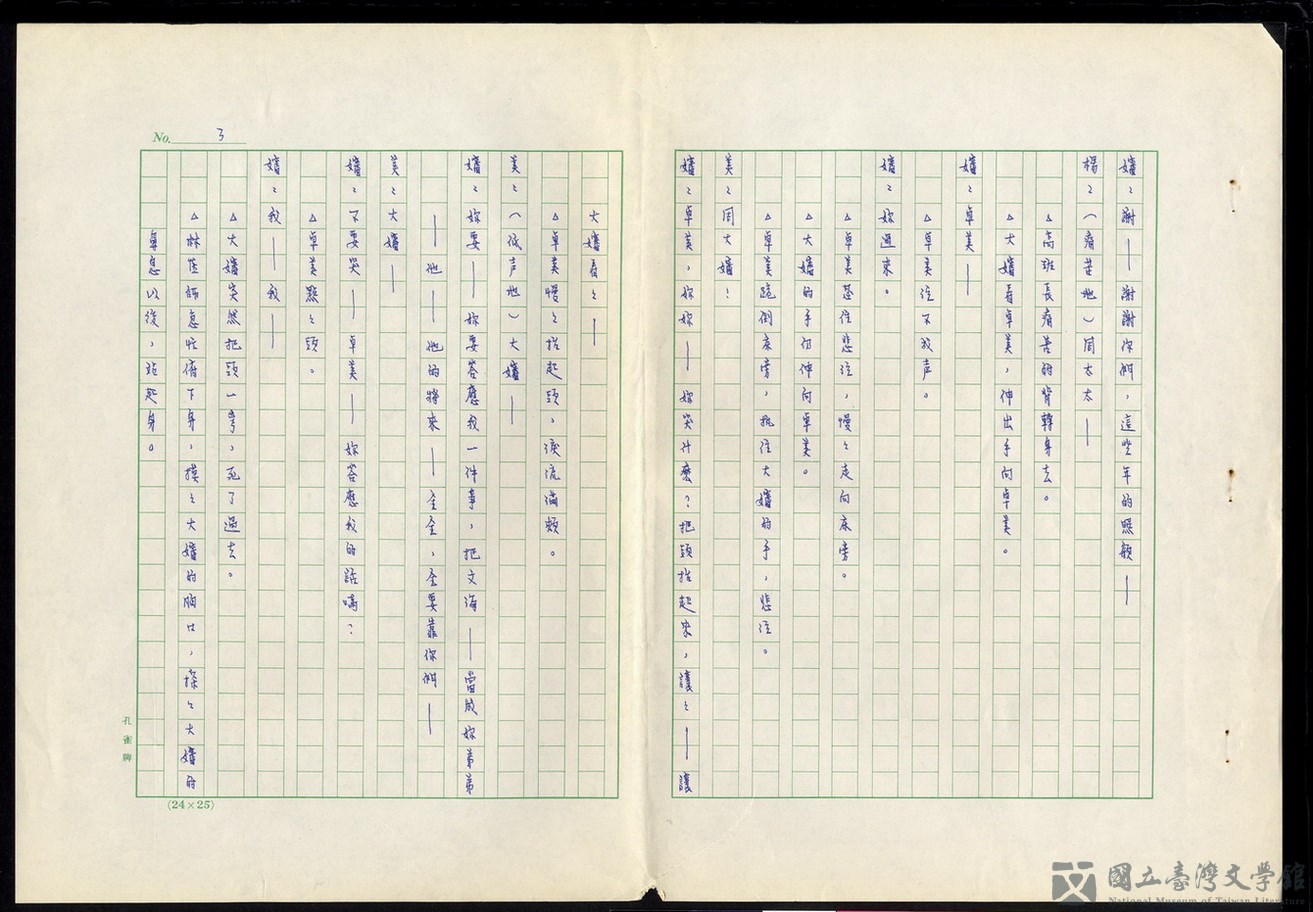 嬸：謝——謝謝你們，這些年的照顧——
楊：（痛苦地）周太太——
△高班長痛苦的背轉身去。
△大嬸看卓美，伸出手向卓美。
嬸：卓美——
△卓美泣不成声。
嬸：妳過來。
△卓美甚住悲泣，慢々走向床旁。
△大嬸的手仍伸向卓美。
△卓美跪倒床旁，執住大嬸的手，悲泣。
美：周大嬸！
嬸：卓美，妳妳——妳哭什麼？把頭抬起來，讓々——讓
大嬸看々——
△卓美慢々抬起頭，淚流滿頰。
美：（低声地）大嬸——
嬸：妳要——妳要答應我一件事，把文海——當成妳弟弟
——他——他的將來——全全，全要靠你們——
美：大嬸——
嬸：不要哭——卓美——妳答應我的話嗎？
△卓美點々頭。
嬸：我——我——
△大嬸突然把頭一彎，死了過去。
△林醫師急忙俯下身，摸々大嬸的胸口，探々大嬸的
鼻息以後，站起身。
No. 3
孔雀牌
(24×25)
國立臺灣文學館
National Museum of Taiwan Literature